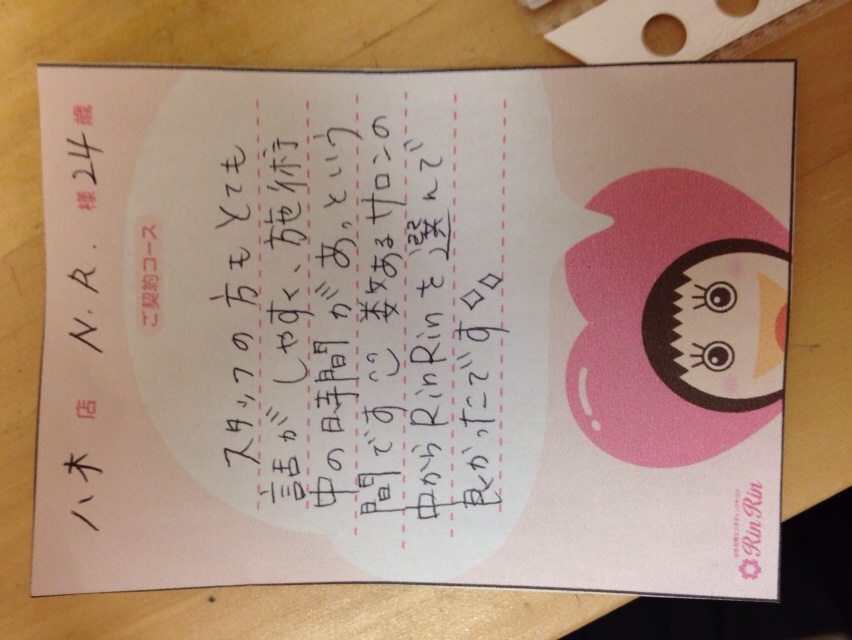 八木 店 N.R. 様 24 歳
ご契約コース
スタッフの方もとても
話がしやすく、施術
中の時間があっという
間です 数あるサロンの
中からRinRinを選んで
良かったです
RinRin